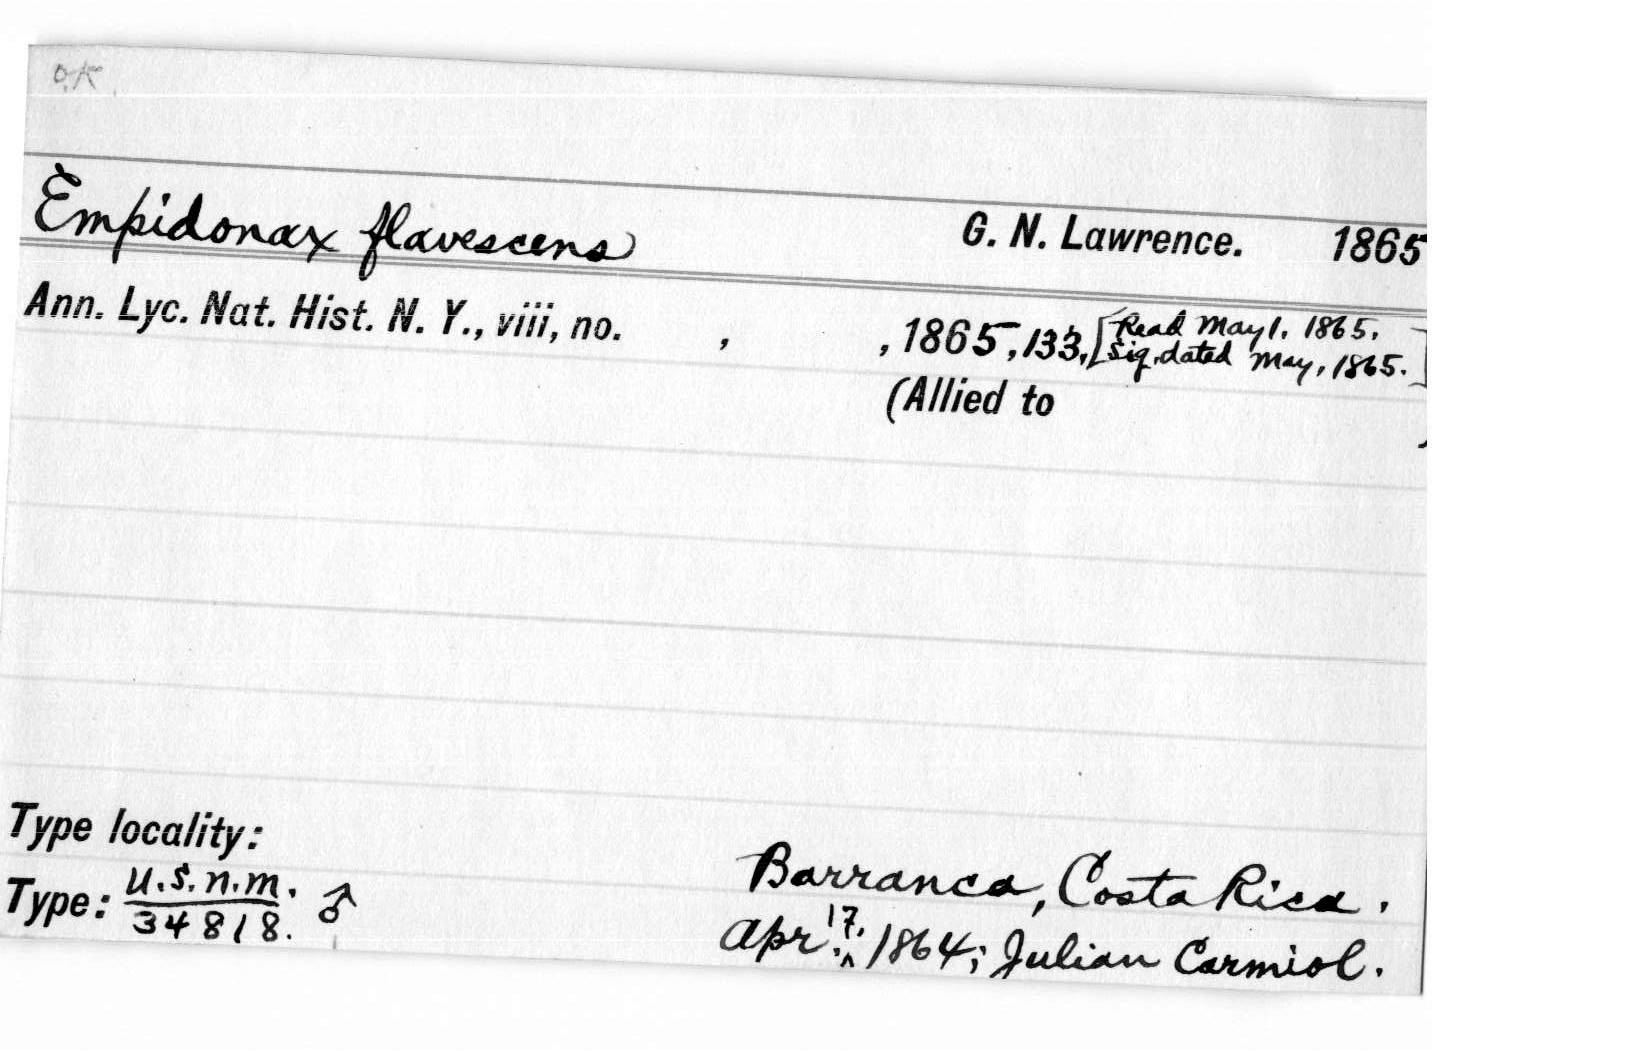 O.K.
Empidonax flavescens G. N. Lawrence. 1865
Ann. Lyc. Nat. Hist. N. Y., viii, no. , , 1865, 133, [Read May 1, 1865.
Sig. dated May, 1865.]
(Allied to )
Type locality:
Barranca, Costa Rica.
Type: U.S.N.M. ♂
34818.
Apr. 17, ^ 1864; Julian Carmiol.